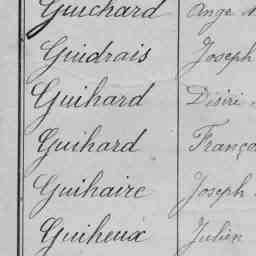 Guichard Ange
Guidrais Joseph
Guihard Désiré
Guihard Franço
Guihaire Joseph
Guiheux Julien